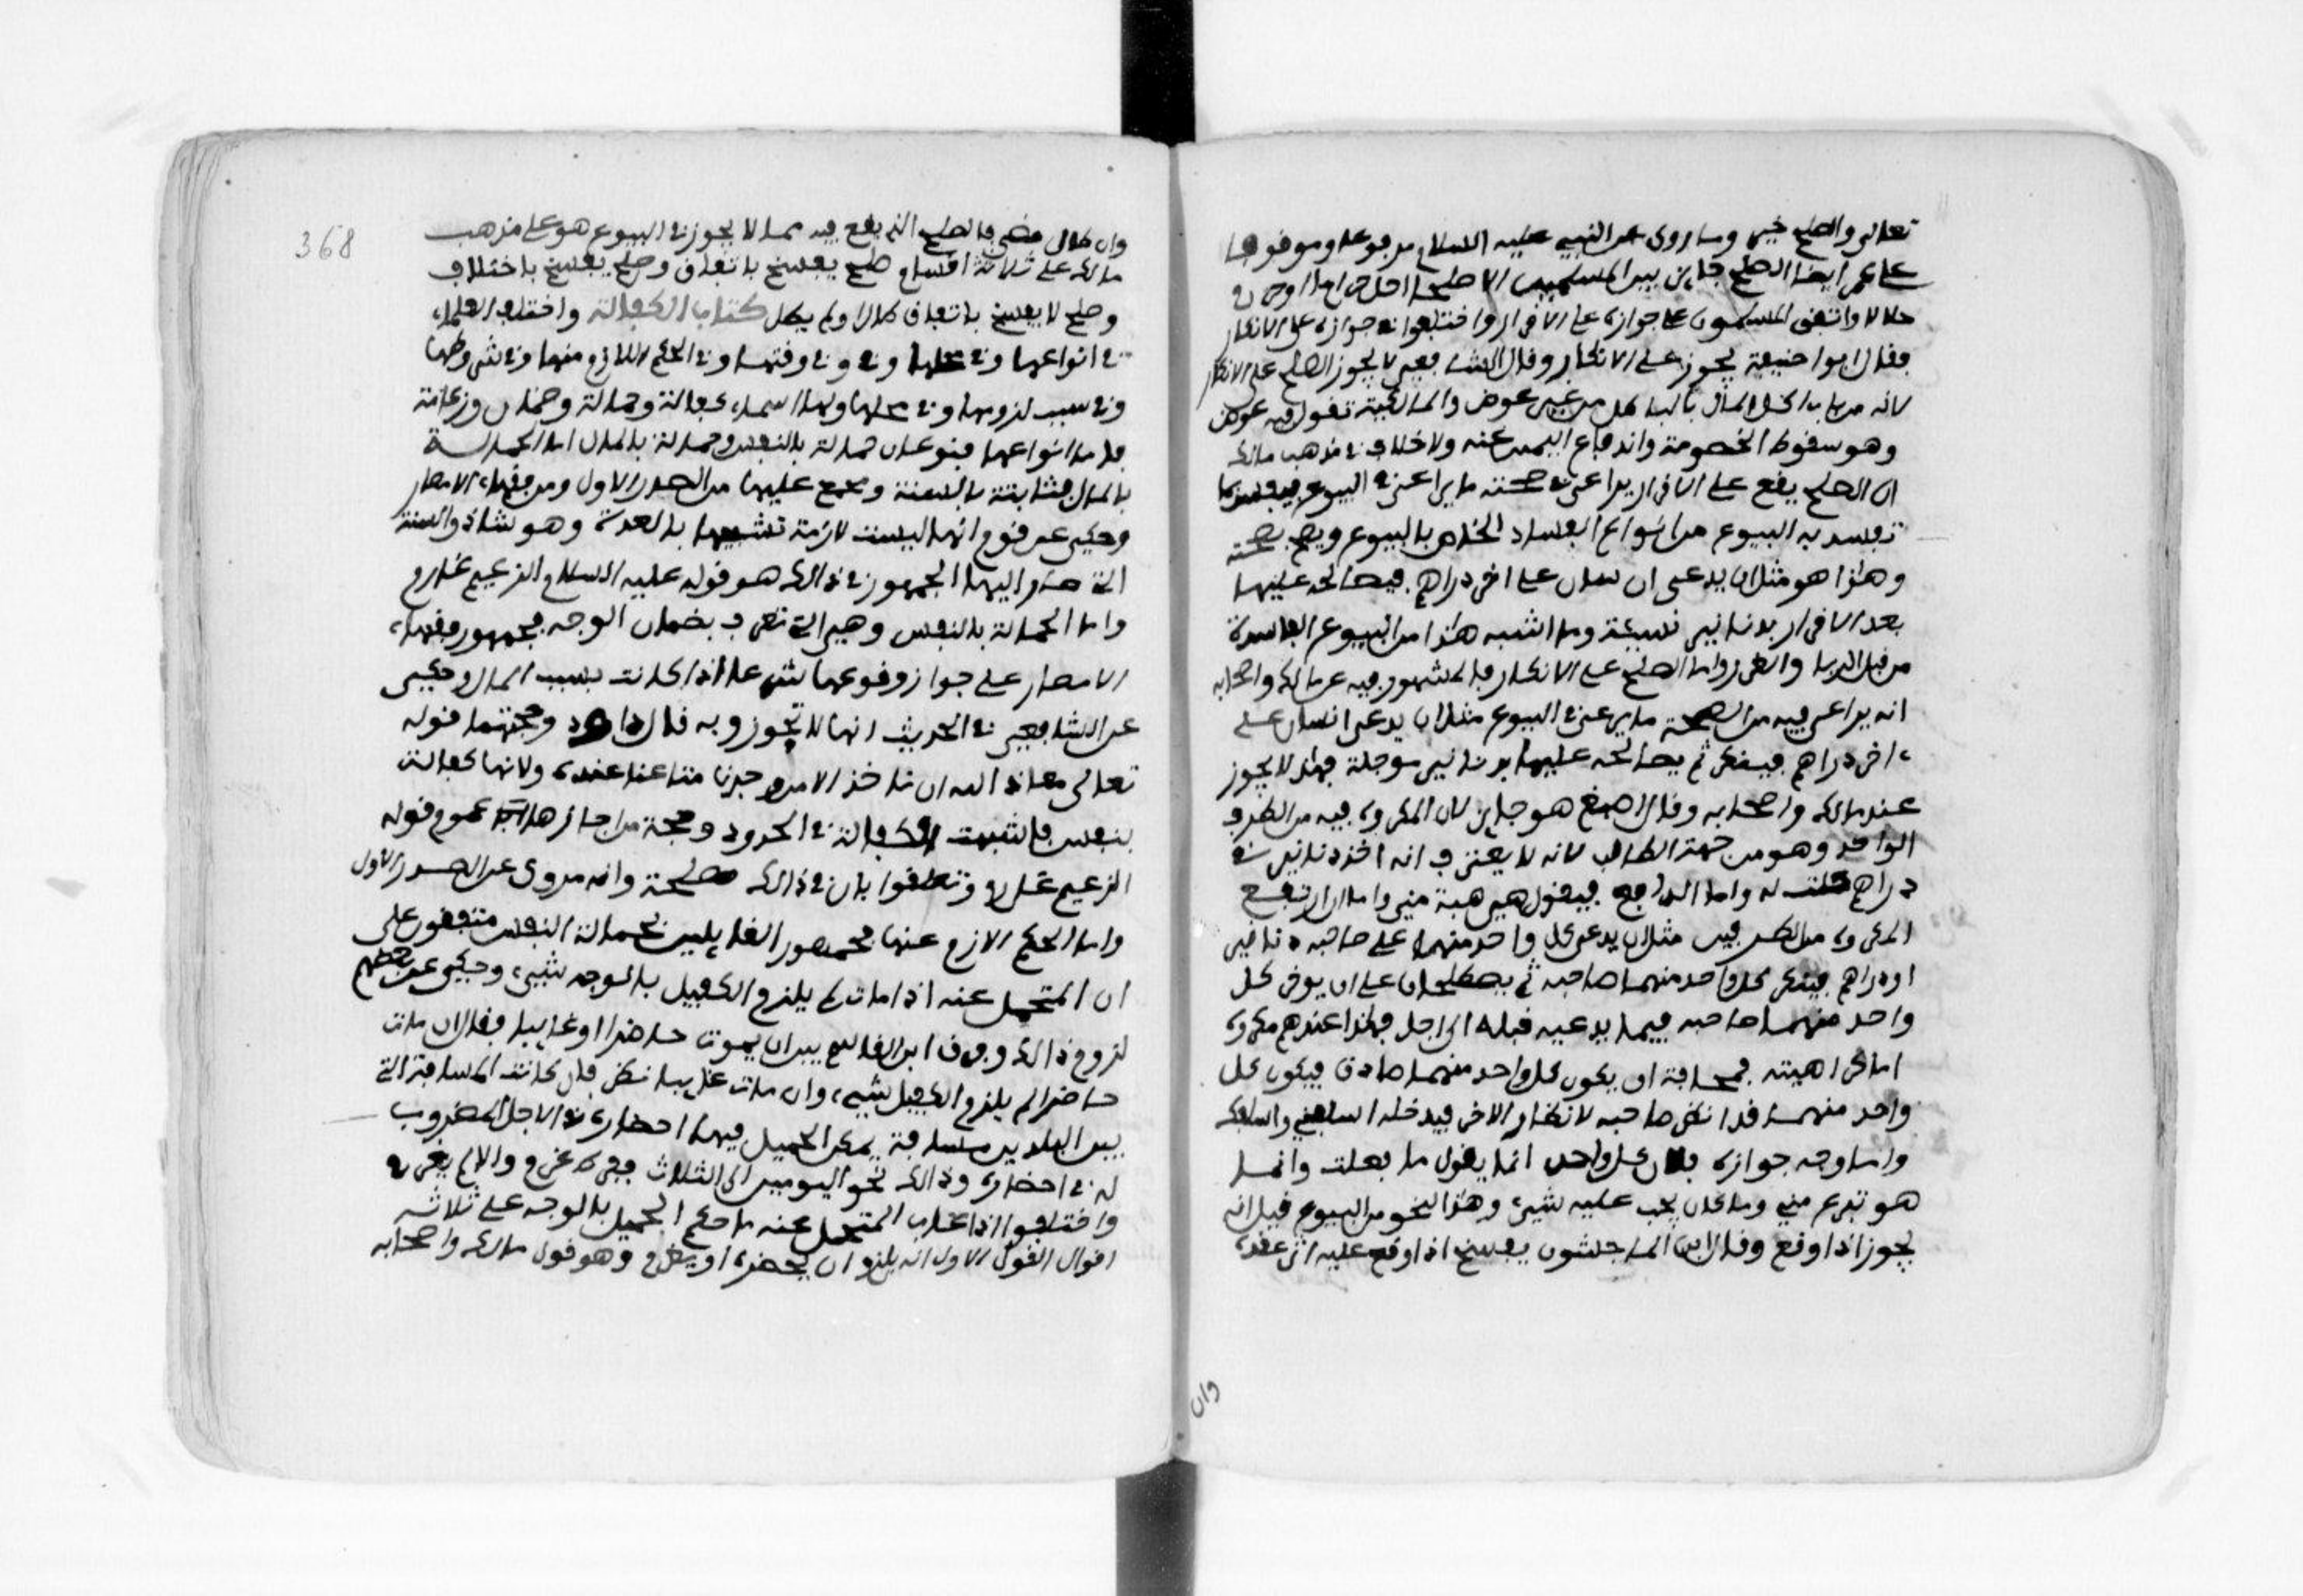 تعالى والصلح خير وما روى عن النبي عليه السلام مرفوعا وموقوفا
على عمر ايضا الصلح جايز بين المسلمين الا صلحا احل حراما او حرم
حلالا واتفق المسلمون على جوازه على الاقرار واختلفوا في جوازه على الانكار
فقال ابوا حنيفة يجوز على الانكار وقال الشافعي لا يجوز الصلح على الانكار
لانه من باب اكل المال بالباطل من غير عوض والمالكية تقول فيه عوض
وهو سقوط الخصومة واندفاع اليمين عنه ولا خلاف في مذهب مالك
ان الصلح يقع على الاقرار يراعى في صحته ما يراعى في البيوع فيفسد بما
تفسد به البيوع من انواع الفساد الخاص بالبيوع ويصح بصحته
وهذا هو مثل ان يدعى انسان على اخر دراهم فيصالحه عليها
بعد الاقرار بدنانير نسيئة وما اشبه هذا من البيوع الفاسدة
من قبل الربا والغرر واما الصلح على الانكار فالمشهور فيه عن مالك واصحابه
انه يراعى فيه من الصحة ما يراعى في البيوع مثل ان يدعى انسان على
اخر دراهم فينكر ثم يصالحه عليها بدنانير موجلة فهذا لا يجوز
عند مالك واصحابه وقال اصبغ هو جايز لان المكروه فيه من الطرف
الواحد وهو من جهة الطالب لانه لا يعترف انه اخذ دنانير في
دراهم حلت له واما الدافع فيقول هي هبة مني واما ان ارتفع
المكروه من الطرفين مثل ان يدعى كل واحد منهما على صاحبه دنانير
او دراهم فينكر كل واحد منهما صاحبه ثم يصطلحان على ان يوخر كل
واحد منهما صاحبه فيما يدعيه قبله الى اجل فهذا عندهم مكروه
اما كراهيته فمخافة ان يكون كل واحد منهما صادق فيكون كل
واحد منهما قد انظر صاحبه لانظار الاخر فيدخله اسلفني واسلفك
واما وجه جوازه فلان كل واحد انما يقول ما فعلت وانما
هو تبرع مني وما كان يجب علي شيء وهذا النحو من البيوع قيل انه
يجوز اذا وقع وقال ابن الماجشون يفسخ اذا وقع عليه اثر عقده
وان
368
وان طال مضى فالصلح الذي يقع فيه مما لا يجوز في البيوع هو على مذهب
مالك على ثلاثة اقسام صلح يفسخ باتفاق وصلح يفسخ باختلاف
وصلح لا يفسخ باتفاق طال او لم يطل كتاب الكفالة واختلف العلماء
في انواعها وفي محلها وفي وفي وقتها وفي الحكم اللازم منها وفي شروطها
وفي سبب لزومها وفي محلها ولها اسماء كفالة وحمالة وضمان وزعامة
فاما انواعها فنوعان حمالة بالنفس وحمالة بالمال اما الحمالة
بالمال فثابتة بالسنة ومجمع عليها من الصدر الاول ومن فقهاء الامصار
وحكي عن قوم انها ليست لازمة تشبيها بالعدة وهو شاذ والسنة
التي صار اليها الجمهور في ذالك هو قوله عليه السلام الزعيم غارم
واما الحمالة بالنفس وهي التي تعرف بضمان الوجه فجمهور فقهاء
الامصار على جواز وقوعها شرعا اذا كانت بسبب المال وحكي
عن الشافعي في الحديث انها لا تجوز وبه قال داود وحجتهما قوله
تعالى معاذ الله ان ناخذ الا من وجدنا متاعنا عنده ولانها كفالة
بنفس فاشبهت الكفالة في الحدود وحجة من اجازها عموم قوله
الزعيم غارم وتعلقوا بان في ذالك مصلحة وانه مروى عن الصدر الاول
واما الحكم الازم عنها فجمهور القايلين بحمالة النفس متفقون على
ان المتحمل عنه اذا مات لم يلزم الكفيل بالوجه شيء وحكي عن بعضهم
لزوم ذالك وفرق ابن القاسم بين ان يموت حاضرا او غايبا فقال ان مات
حاضرا لم يلزم الكفيل شيء وان مات غايبا نظر فان كانت المسافة التي
بين البلدين مسافة يمكن الحميل فيها احضاره في الاجل المضروب
له في احضاره وذالك نحو اليومين الى الثلاث ففرط غرم والا لم يغرم
واختلفوا اذا غاب المتحمل عنه ما حكم الحميل بالوجه على ثلاثة
اقوال القول الاول انه يلزم ان يحضره او يغرم وهو قول مالك واصحابه